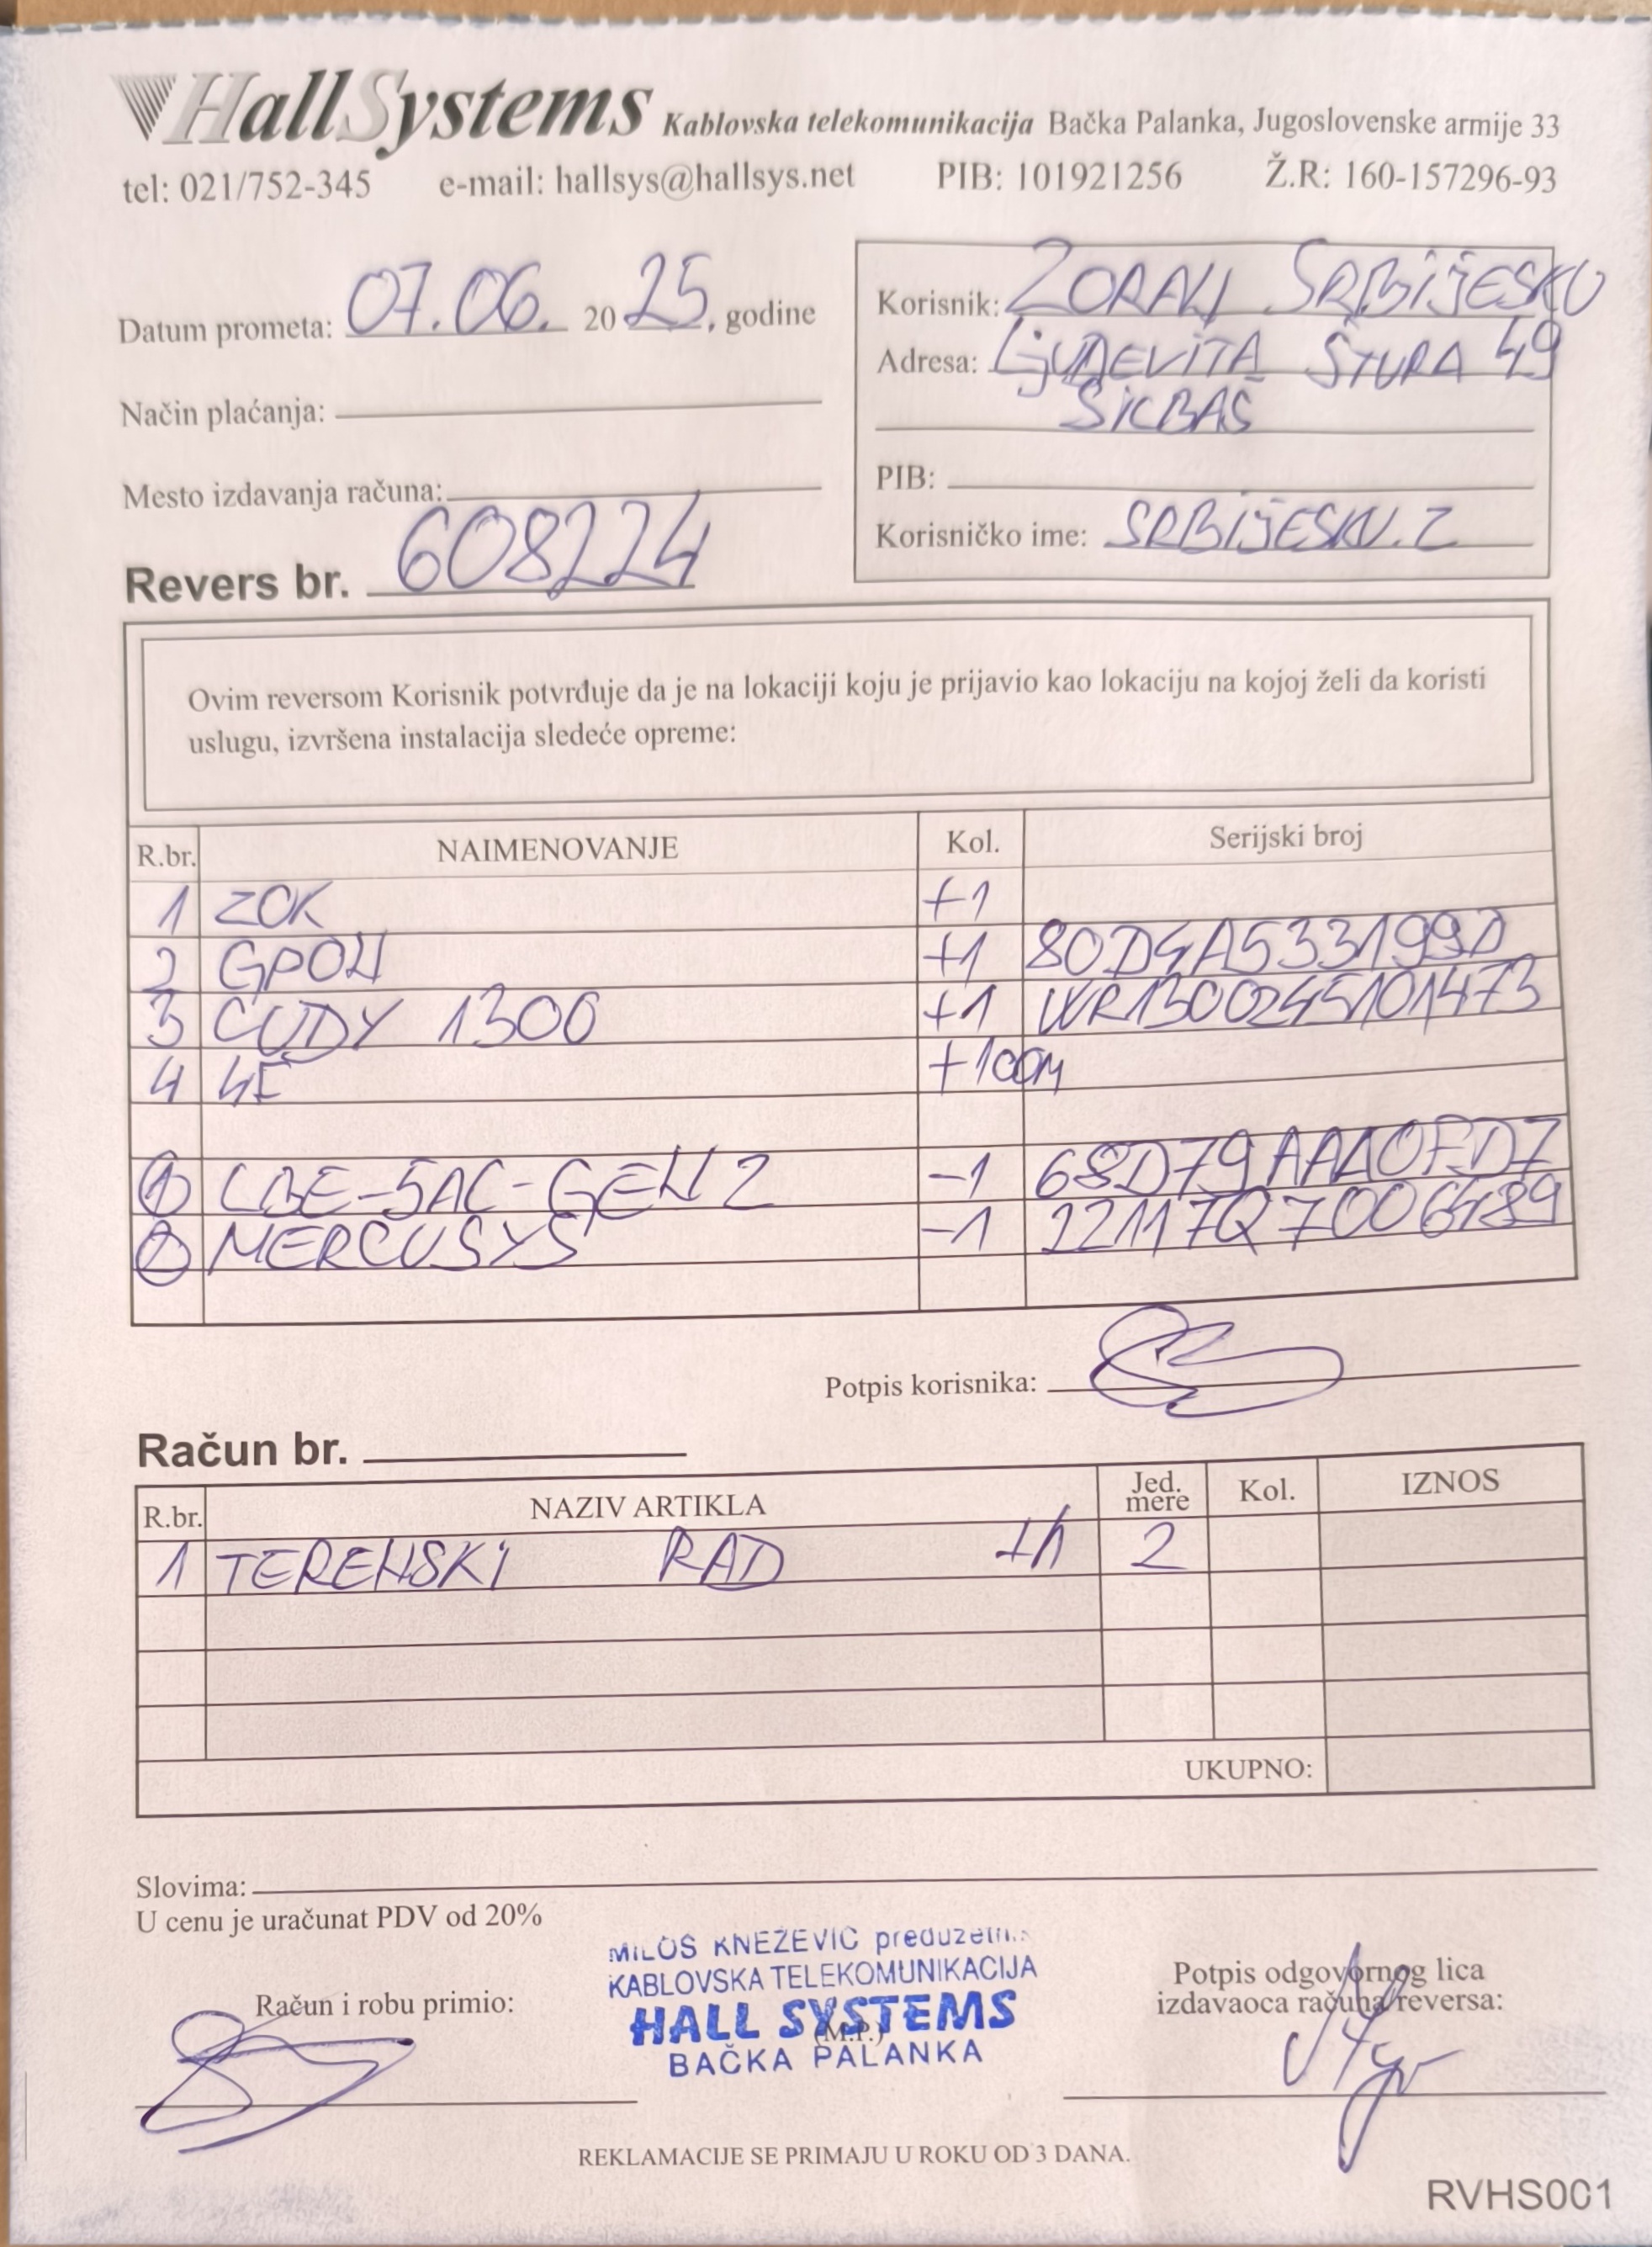 HallSystems Kablovska telekomunikacija Bačka Palanka, Jugoslovenske armije 33
tel: 021/752-345 e-mail: hallsys@hallsys.net PIB: 101921256 Ž.R: 160-157296-93
Datum prometa: 07.06. 2025, godine
Način plaćanja:
Mesto izdavanja računa:
Revers br. 608224
Korisnik: ZORAN SRBIJESKU
Adresa: LJUDEVITA ŠTURA 49
SILBAŠ
PIB:
Korisničko ime: SRBIJESKU.Z
Ovim reversom Korisnik potvrđuje da je na lokaciji koju je prijavio kao lokaciju na kojoj želi da koristi
uslugu, izvršena instalacija sledeće opreme:
R.br. NAIMENOVANJE Kol. Serijski broj
1 ZOK +1
2 GPON +1 80D4A533199D
3 CUDY 1300 +1 WR1300245101473
4 4F +100M
1 LBE-5AC-GEN 2 -1 68D79AAA0FD7
2 MERCUSYS -1 22117Q7006489
Potpis korisnika:
Račun br.
R.br. NAZIV ARTIKLA Jed. mere Kol. IZNOS
1 TERENSKI RAD 1h 2
UKUPNO:
Slovima:
U cenu je uračunat PDV od 20%
Račun i robu primio:
MILOŠ KNEŽEVIĆ preduzetnik
KABLOVSKA TELEKOMUNIKACIJA
HALL SYSTEMS
(M.P.)
BAČKA PALANKA
Potpis odgovornog lica
izdavaoca računa/reversa:
REKLAMACIJE SE PRIMAJU U ROKU OD 3 DANA.
RVHS001